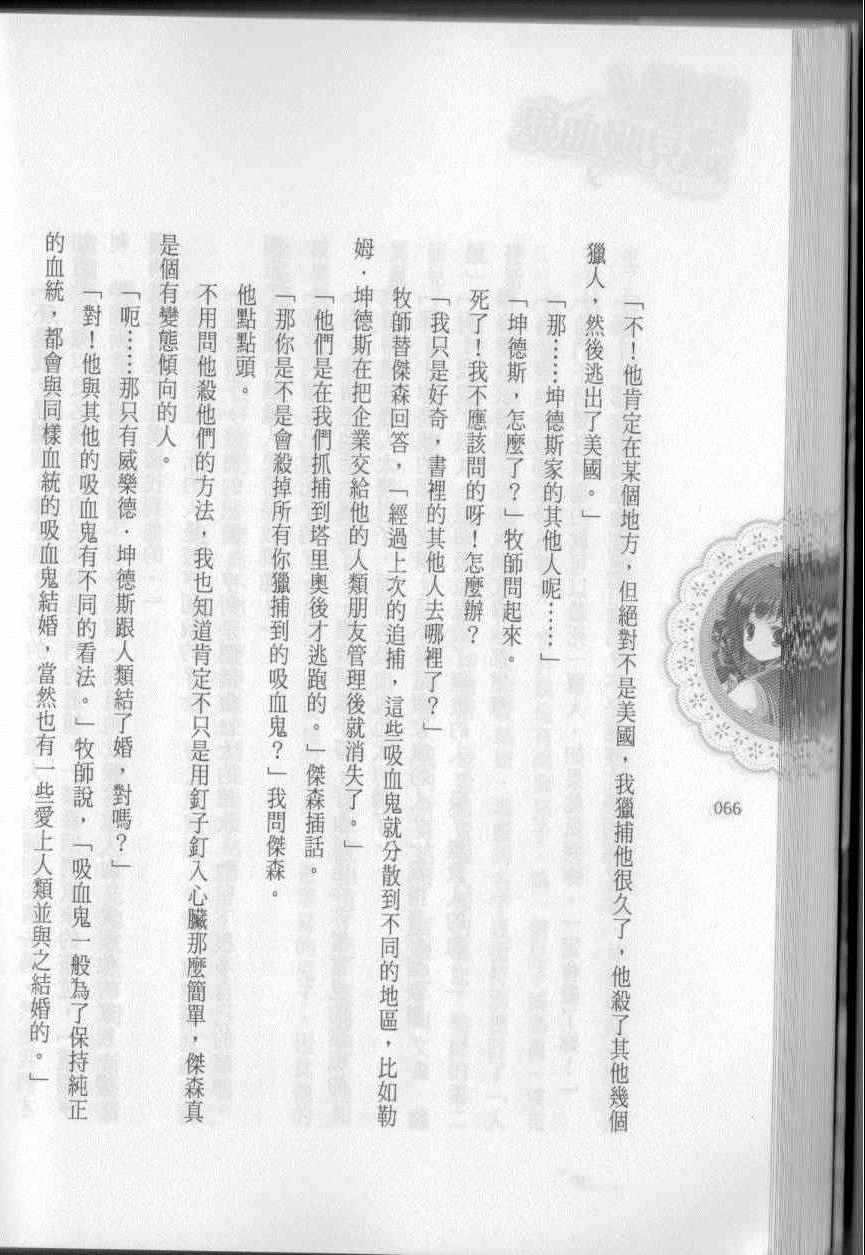 「不！他肯定在某個地方，但絕對不是美國，我獵捕他很久了，他殺了其他幾個
獵人，然後逃出了美國。」
「那……坤德斯家的其他人呢……」
「坤德斯，怎麼了？」牧師問起來。
死了！我不應該問的呀！怎麼辦？
「我只是好奇，書裡的其他人去哪裡了？」
牧師替傑森回答，「經過上次的追捕，這些吸血鬼就分散到不同的地區，比如勒
姆．坤德斯在把企業交給他的人類朋友管理後就消失了。」
「他們是在我們抓捕到塔里奧後才逃跑的。」傑森插話。
「那你是不是會殺掉所有你獵捕到的吸血鬼？」我問傑森。
他點點頭。
不用問他殺他們的方法，我也知道肯定不只是用釘子釘入心臟那麼簡單，傑森真
是個有變態傾向的人。
「呃……那只有威樂德．坤德斯跟人類結了婚，對嗎？」
「對！他與其他的吸血鬼有不同的看法。」牧師說，「吸血鬼一般為了保持純正
的血統，都會與同樣血統的吸血鬼結婚，當然也有一些愛上人類並與之結婚的。」
066